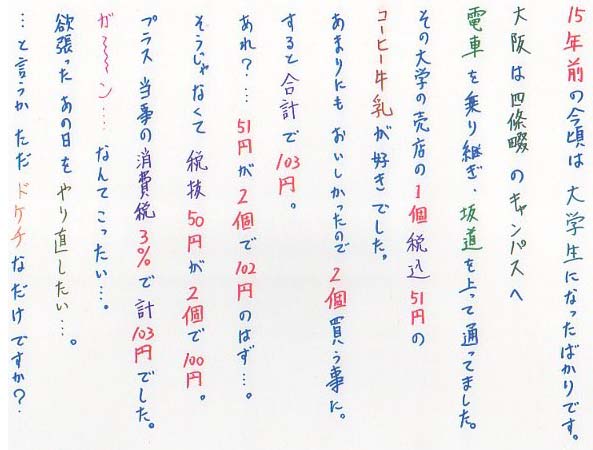 15年前の今頃は 大学生になったばかりです。
大阪は四條畷 のキャンパスへ
電車を乗り継ぎ、坂道を上って通ってました。
その大学の売店の1個税込51円の
コーヒー牛乳が好きでした。
あまりにも おいしかったので 2個買う事に。
すると合計で103円。
あれ?…51円が2個で102円のはず…。
そうじゃなくて 税抜50円が2個で100円。
プラス 当事の消費税3%で計103円でした。
が〜〜ン… なんてこったい…。
欲張った あの日を やり直したい…。
…と言うか ただ ドケチなだけですか?